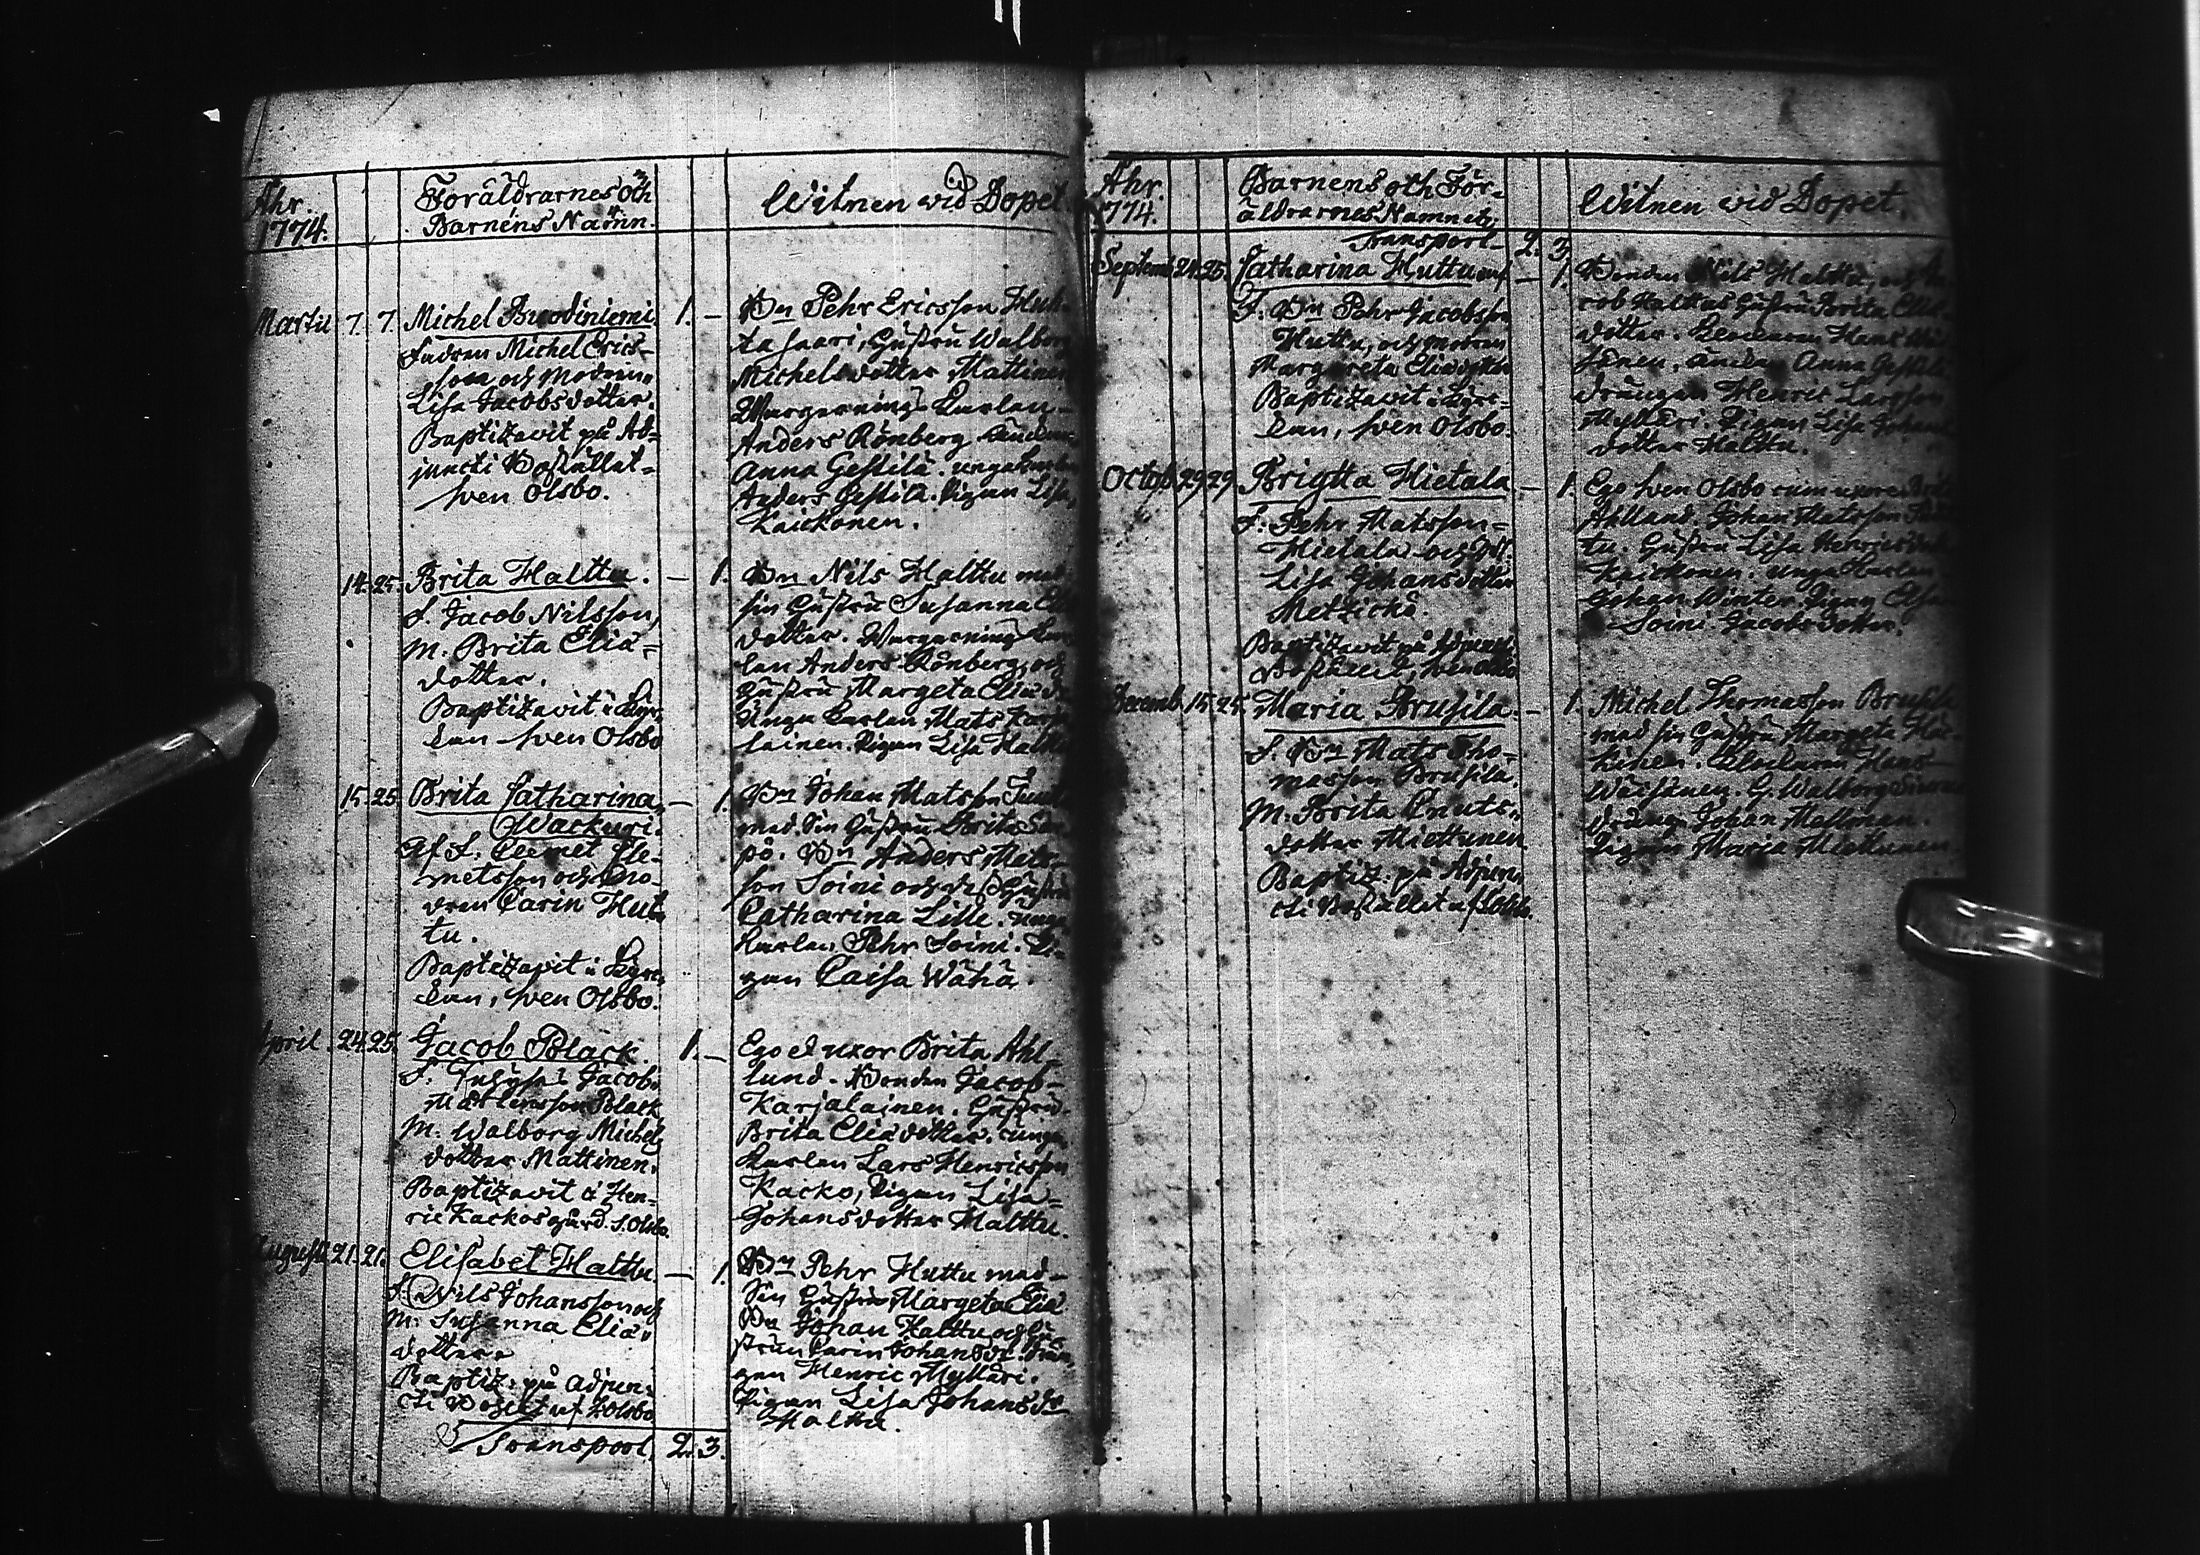 Ahr
1774.
Föräldrarnes och
Barnens Namn.
Witnen wid Dopet
Martii 7. 7. Michel 1. —
Fadren Michel Erics-
son, och Modren
Lisa Jacobsdotter.
Baptizavit på Ad-
juncti Bostället
Sven Olsbo.
Bn Pehr Ericsson Hut-
tasaari, Hustru Walborg
Michelsdotter Mattinen
Anders Rönberg
Anna Gestilä. unga
Anders Gestilä. Pigan Lisa
Kaickonen.
14. 25. Brita Halttu. — 1.
F. Jacob Nilsson,
M. Brita Elia-
dotter.
Baptizavit i Kyr-
kan Sven Olsbo
Bn Nils Halttu med
sin Hustru Susanna
dotter.
Anders Rönberg, och
Hustru Margeta
Mats Karja-
lainen. Pigan Lisa
15. 25. Brita Catharina — 1.
Wackuri.
Af F. Clemet Cle-
metsson och Mo-
dren Carin Hut-
tu.
Baptizavit i Kyr-
kan, Sven Olsbo.
Bn Johan Matsson
med sin Hustru Brita
Bn Anders Mats-
son Soini och dess Hustru
Catharina Lille. unga
karlen Pehr Soini. Pi-
gan Caisa Wähä.
April. 24. 25. Jacob Black. 1. —
F. Jacob
Black
M. Walborg Michels
dotter Mattinen.
Baptizavit i Hen-
ric Kackos gård. S. Olsbo.
Ego et uxor Brita Ahl-
lund. Bonden Jacob
Karjalainen. Hustru
Brita Eliadotter. unga
karlen Lars Henricsson
Kacko, Pigan Lisa
Johansdotter Halttu.
Augusti 21. 21. Elisabet Halttu — 1.
F. Nils Johansson och
M. Susanna Elia-
dotter
Baptiz. på Adjun-
cti Bostället af S. Olsbo
Bn Pehr Huttu med
sin Hustru Margeta Elia
Bn Johan Halttu och Hu-
strun Carin Johansdr. Drän-
gen Henric Mylläri.
Pigan Lisa Johansdr
Halttu.
Transport 2. 3.
Ahr
1774.
Barnens och För-
äldrarnes Namn etc.
Witnen wid Dopet.
Transport 2. 3.
Septemb. 24. 25. Catharina Huttu — 1.
F. Bn Pehr Jacobsson
Huttu, och Modren
Margareta Eliadotter
Baptizavit i Kyrc-
kan, Sven Olsbo.
Bonden Nils Halttu, och
cob Halttus Hustru Brita Elia
dotter. Klockaren Hans Wäi-
sänen, Anna Gestilä
drängen Henric Larsson
Mylläri. Pigan Lisa Johans
dotter Halttu.
Octob. 29. 29. Brigtta Hietala — 1.
F. Pehr Matsson
Hietala och
Lisa Johansdotter
Metzickö.
Baptizavit på Adjuncti
Bostället, Sven Olsbo
Ego Sven Olsbo cum uxore Brita
Ahllund. Johan Matsson
tu. Hustru Lisa Henricsdott
Kaickonen. unga Karlen
Johan Winter. Pigan
Soini Jacobsdotter.
Decemb. 15. 25. Maria Brusila. — 1.
F. Bn Mats Tho-
masson Brusila.
M. Brita Knuts-
dotter Miettunen
Baptiz. på Adjun-
cti Bostället af S. Olsbo.
Michel Thomasson Brusila
med sin Hustru Margeta Hä-
kinen. Klockaren Hans
Wäisänen. H. Walborg
dräng Johan
Pigan Maria Miettunen